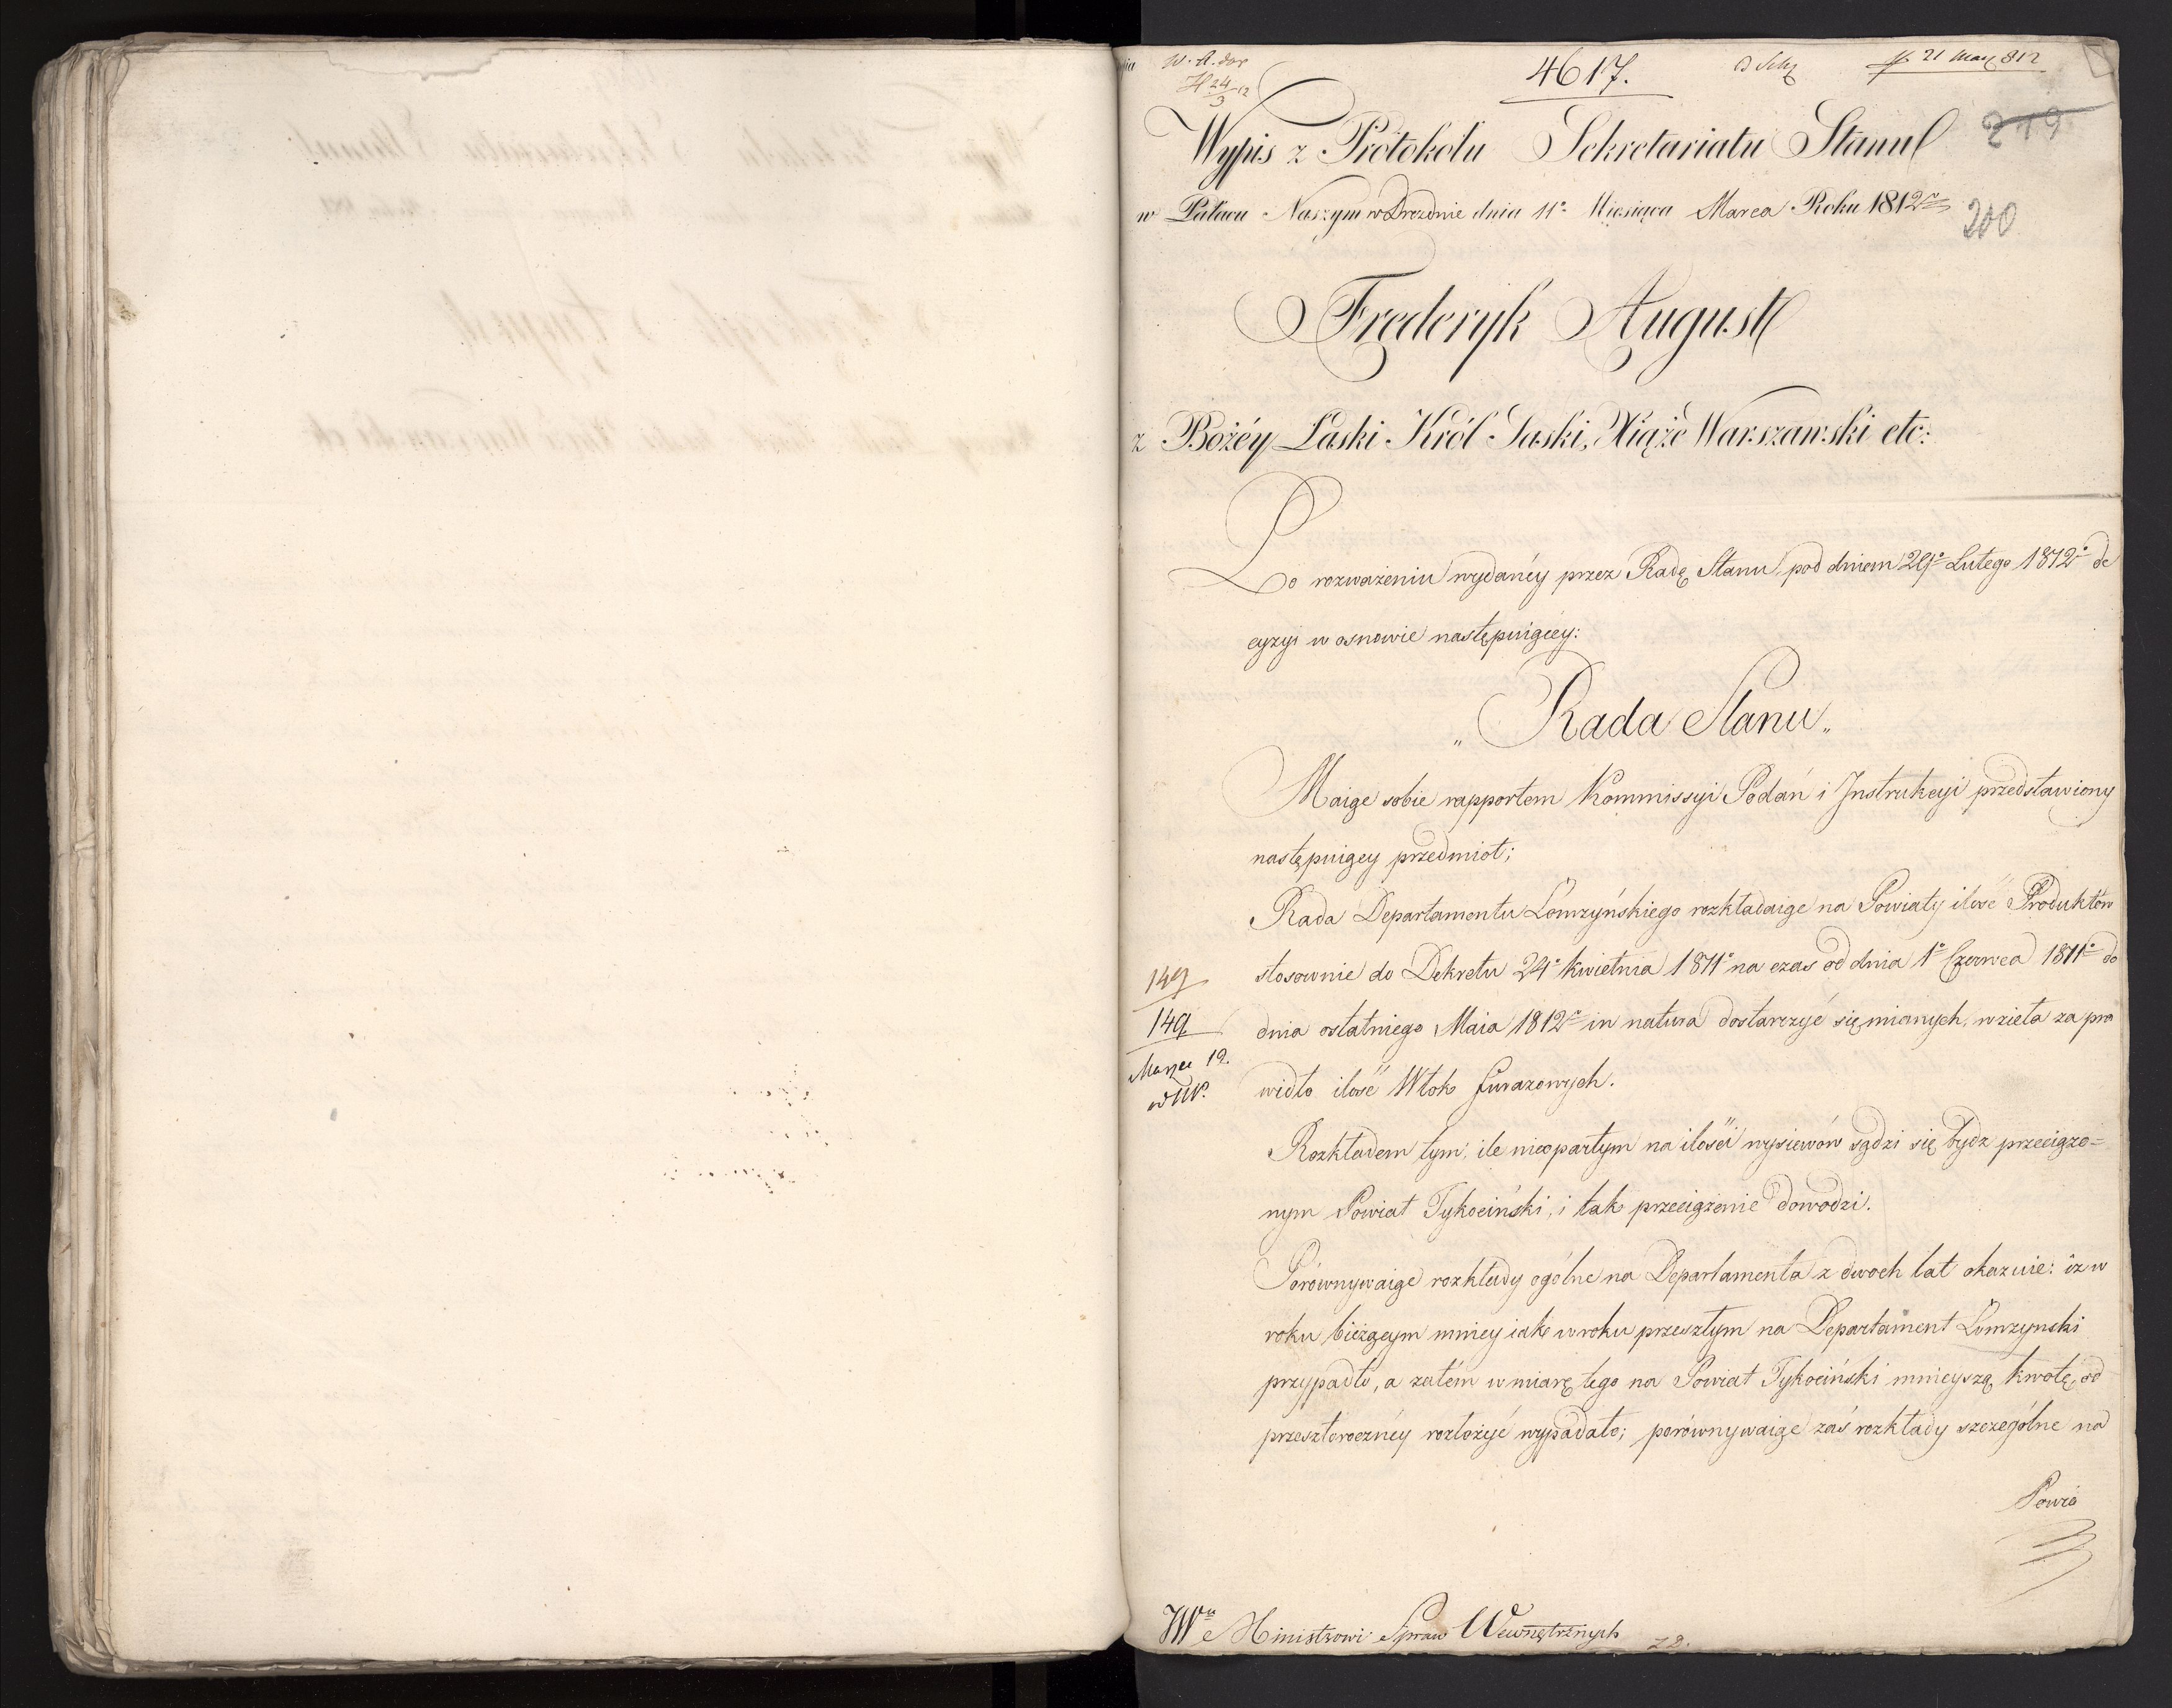 4617.
21 May 812
219
Wypis z Protokołu Sekretariatu Stanu
w Pałacu Naszym w Dreznie dnia 11º Miesiąca Marca Roku 1812º
200
Frederyk August
z Bożéy Łaski Król Saski, Xiąże Warszawski etc:
Po rozważeniu wydanéy przez Radę Stanu, pod dniem 29º Lutego 1812º de
cyzyi w osnowie następuiącéy:
„Rada Stanu„
Maiąc sobie rapportem Kommissyi Podań i Instrukcyi przedstawiony
następuiący przedmiot;
Rada Departamentu Łomzyńskiego rozkładaiąc na Powiaty ilość Produktów
stosownie do Dekretu 24º Kwietnia 1811º na czas od dnia 1º Czerwca 1811º do
dnia ostatniego Maia 1812º in natura dostarczyć się mianych, wzieła za pra
widło ilość Włok furazowych.
149
149
Marzec 12.
Rozkładem tym, ile nieopartym na ilości wysiewów sądzi się bydz przeciązo=
nym Powiat Tykociński, i tak przeciązenie dowodzi.
Porównywaiąc rozkłady ogólne na Departamenta z dwoch lat okazuie: iż w
roku bieżącym mniey iak w roku przeszłym na Departament Łomzynski
przypadło, a zatém w miarę tego na Powiat Tykociński mnieyszą kwotę, od
przeszłorocznéy rozłożyć wypadało; porównywaiąc zaś rozkłady szczególne na
Powia
JWu Ministrowi Spraw Wewnętrznych